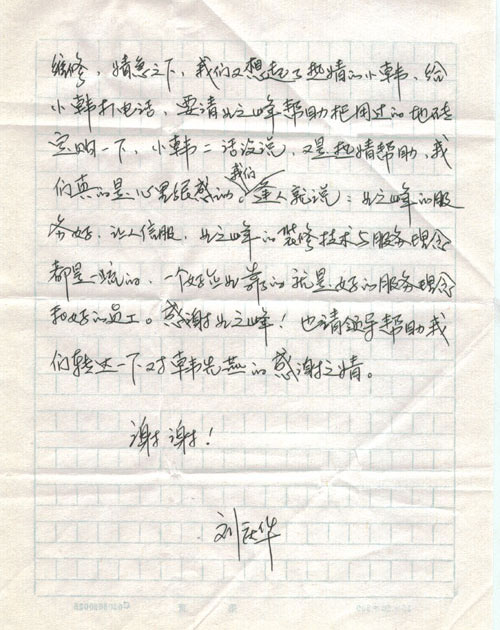 维修，情急之下，我们又想起了热情的小韩，给
小韩打电话，要请业之峰帮助把用过的地砖
定购一下，小韩二话没说，又是热情帮助，我
们真的是心里很感动。我们逢人就说：业之峰的服
务好，让人信服，业之峰的装修技术与服务理念
都是一流的，一个好企业靠的就是好的服务理念
和好的员工。感谢业之峰！也请领导帮助我
们转达一下对韩先燕的感谢之情。
谢谢！
刘庆华